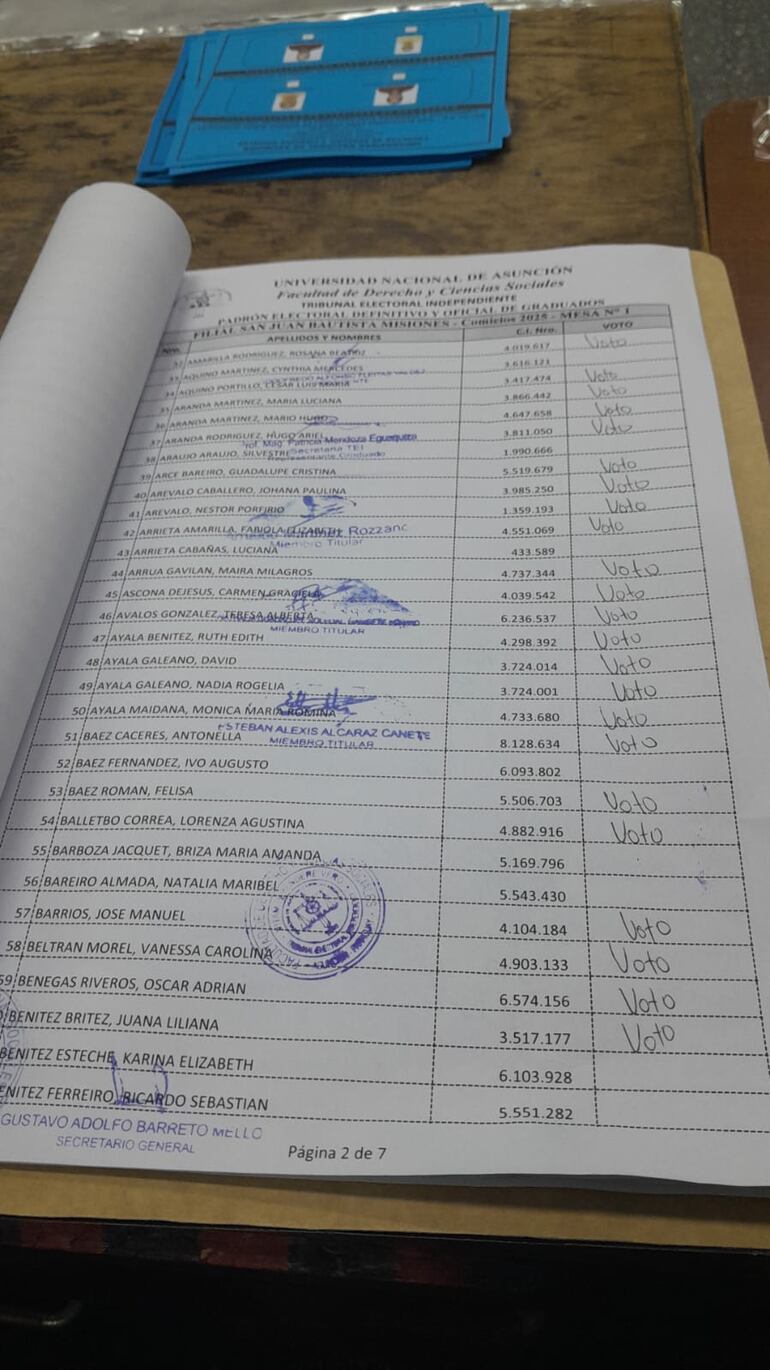 UNIVERSIDAD NACIONAL DE ASUNCIÓN
Facultad de Derecho y Ciencias Sociales
TRIBUNAL ELECTORAL INDEPENDIENTE
PADRÓN ELECTORAL DEFINITIVO Y OFICIAL DE GRADUADOS
FILIAL SAN JUAN BAUTISTA MISIONES - Comicios 2025 - MESA Nº 1
Nro. APELLIDOS Y NOMBRES C.I. Nro. VOTO
32 AMARILLA RODRIGUEZ, ROSANA BEATRIZ 4.019.617 Voto
33 AQUINO MARTINEZ, CYNTHIA MERCEDES 3.616.121
34 AQUINO PORTILLO, CESAR LUIS MARIA 3.417.474 Voto
35 ARANDA MARTINEZ, MARIA LUCIANA 3.866.442 Voto
36 ARANDA MARTINEZ, MARIO HUGO 4.647.658 Voto
37 ARANDA RODRIGUEZ, HUGO ARIEL 3.811.050 Voto
Prof. Mag. Patricia Mendoza Eguequiza
Secretaria TEI
Representante Graduado
38 ARAUJO ARAUJO, SILVESTRE 1.990.666
39 ARCE BAREIRO, GUADALUPE CRISTINA 5.519.679 Voto
40 AREVALO CABALLERO, JOHANA PAULINA 3.985.250 Voto
41 AREVALO, NESTOR PORFIRIO 1.359.193 Voto
42 ARRIETA AMARILLA, FABIOLA ELIZABETH 4.551.069 Voto
Rozzanc
Miembro Titular
43 ARRIETA CABAÑAS, LUCIANA 433.589
44 ARRUA GAVILAN, MAIRA MILAGROS 4.737.344 Voto
45 ASCONA DEJESUS, CARMEN GRACIELA 4.039.542 Voto
46 AVALOS GONZALEZ, TERESA ALBERTA 6.236.537 Voto
MIEMBRO TITULAR
47 AYALA BENITEZ, RUTH EDITH 4.298.392 Voto
48 AYALA GALEANO, DAVID 3.724.014 Voto
49 AYALA GALEANO, NADIA ROGELIA 3.724.001 Voto
50 AYALA MAIDANA, MONICA MARIA ROMINA 4.733.680 Voto
ESTEBAN ALEXIS ALCARAZ CAÑETE
MIEMBRO TITULAR
51 BAEZ CACERES, ANTONELLA 8.128.634 Voto
52 BAEZ FERNANDEZ, IVO AUGUSTO 6.093.802
53 BAEZ ROMAN, FELISA 5.506.703 Voto
54 BALLETBO CORREA, LORENZA AGUSTINA 4.882.916 Voto
55 BARBOZA JACQUET, BRIZA MARIA AMANDA 5.169.796
56 BAREIRO ALMADA, NATALIA MARIBEL 5.543.430
57 BARRIOS, JOSE MANUEL 4.104.184 Voto
58 BELTRAN MOREL, VANESSA CAROLINA 4.903.133 Voto
59 BENEGAS RIVEROS, OSCAR ADRIAN 6.574.156 Voto
BENITEZ BRITEZ, JUANA LILIANA 3.517.177 Voto
BENITEZ ESTECHE, KARINA ELIZABETH 6.103.928
ENITEZ FERREIRO, RICARDO SEBASTIAN 5.551.282
GUSTAVO ADOLFO BARRETO MELLO
SECRETARIO GENERAL
Página 2 de 7